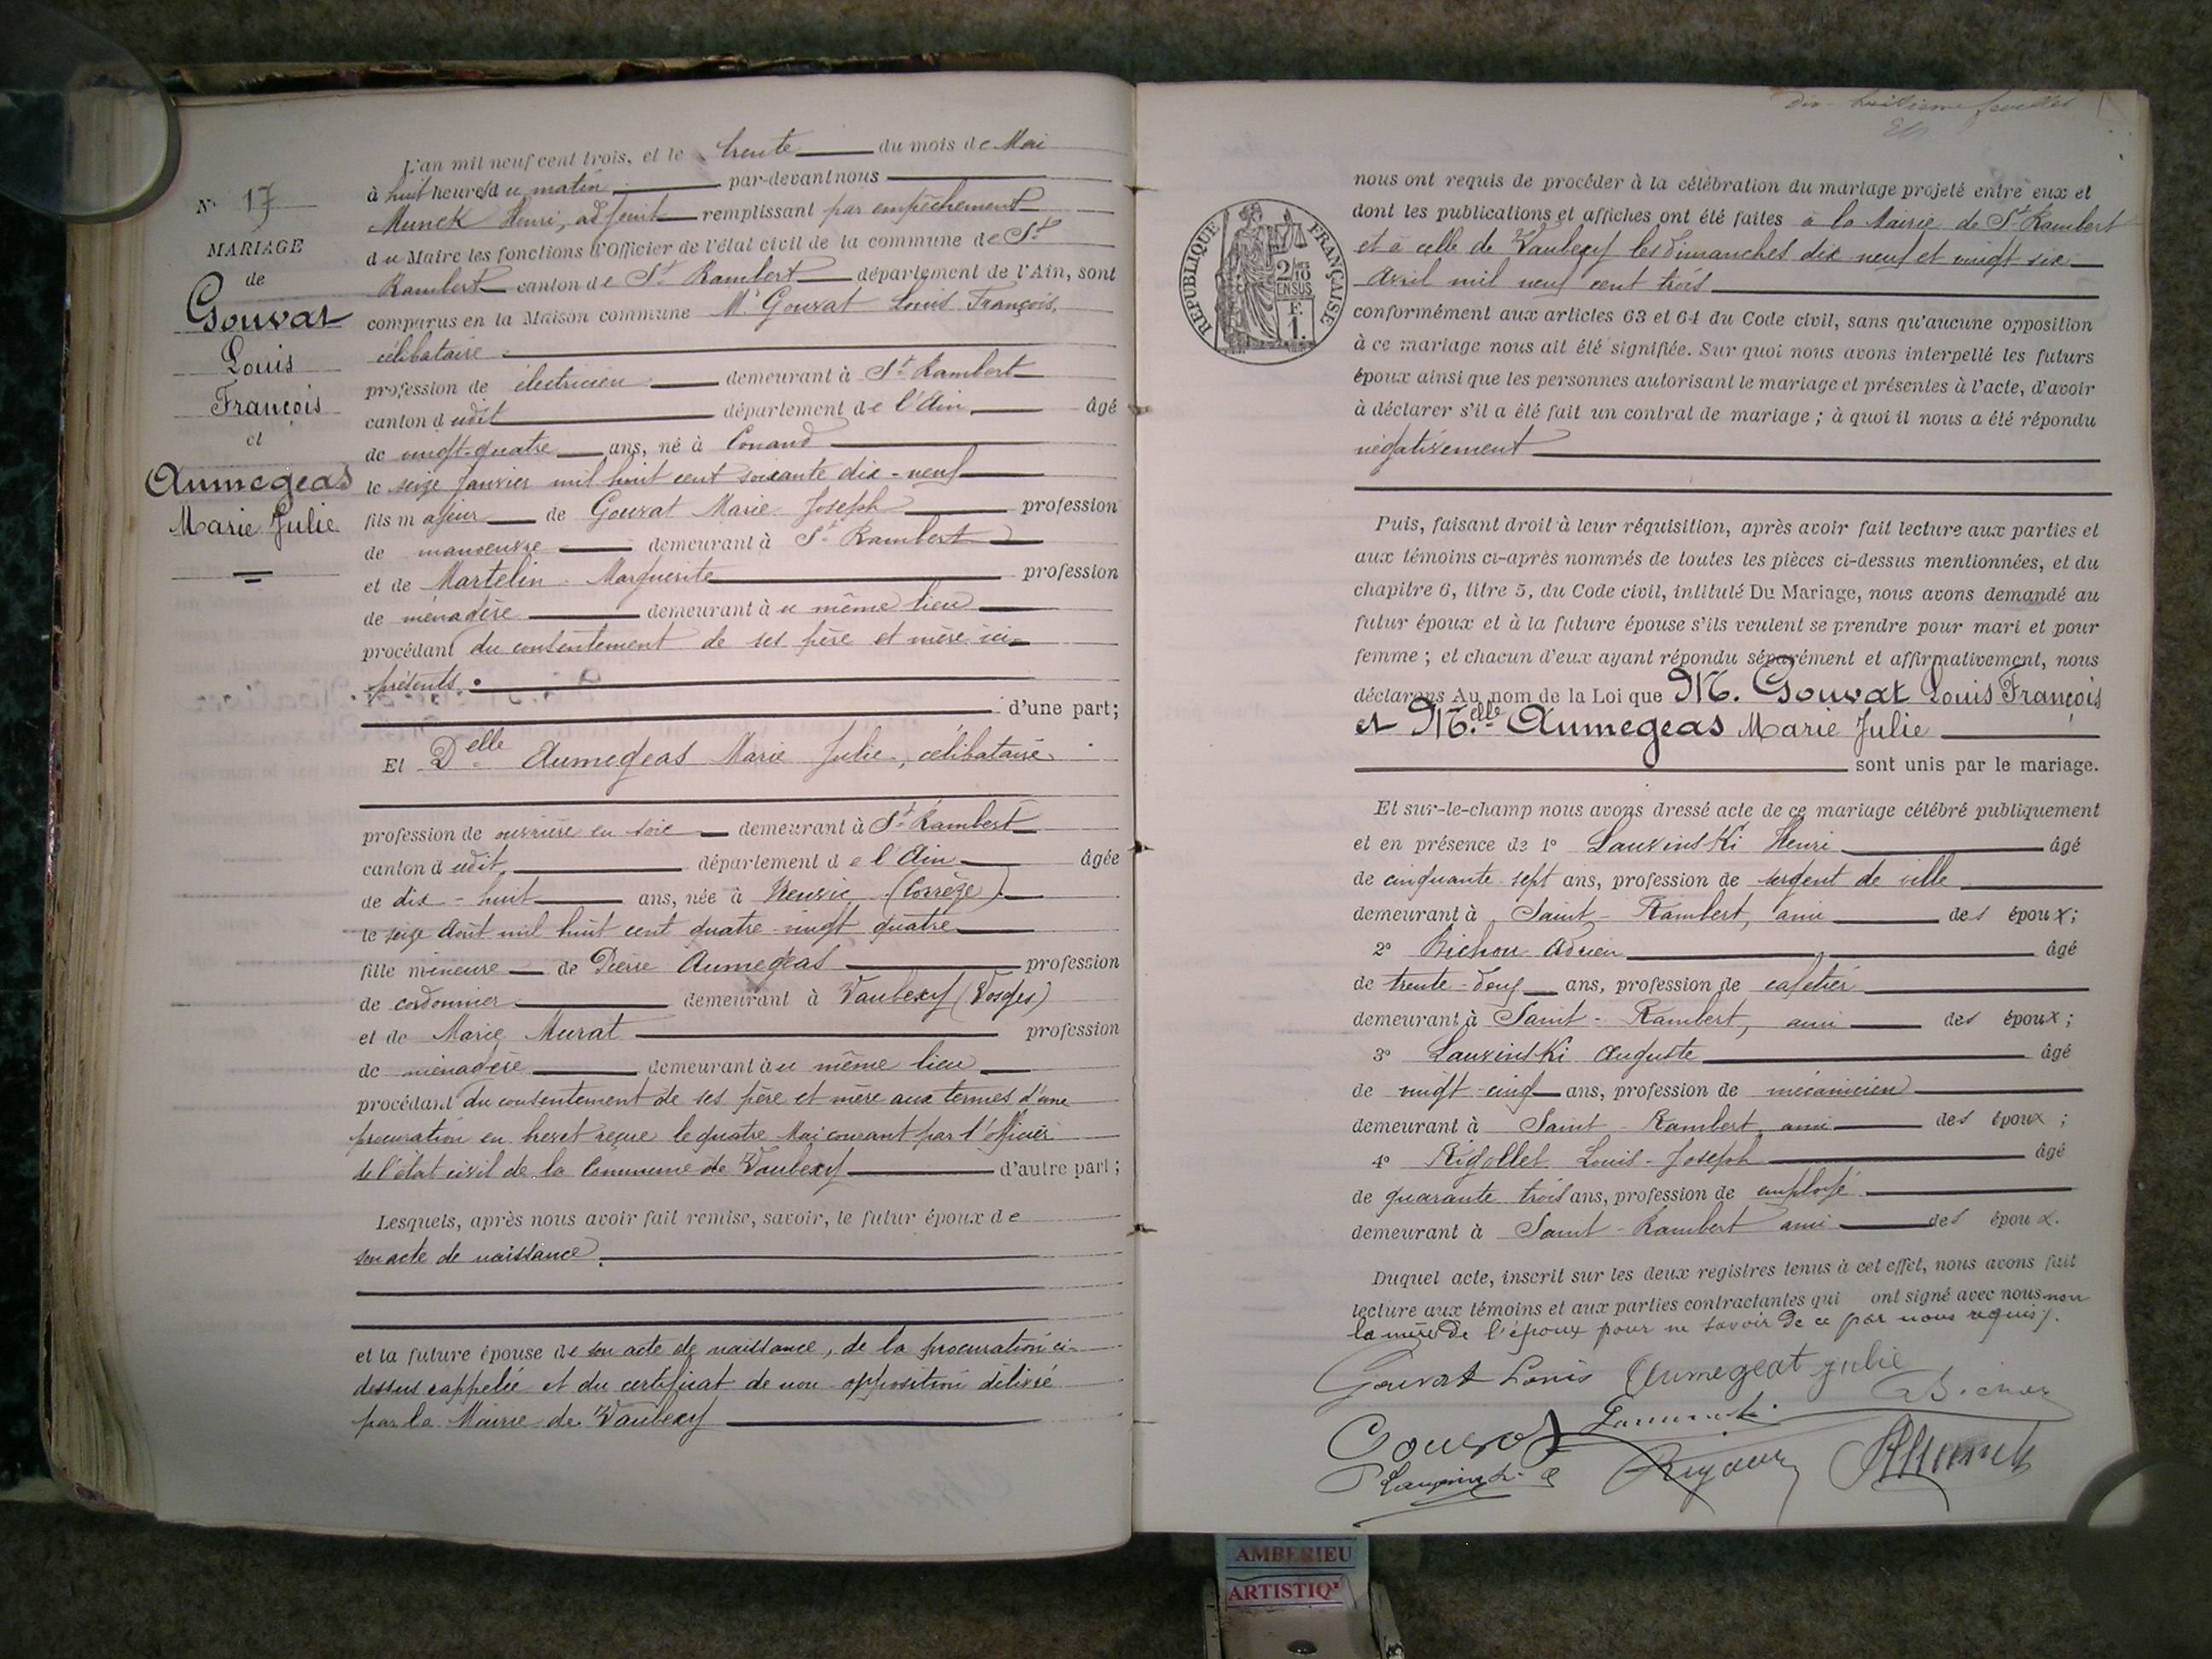 L'an mil neuf cent trois, et le trente du mois de Mai
à huit heures du matin par-devant nous
Munck Henri, adjoint remplissant par empêchement
du Maire les fonctions d'Officier de l'état civil de la commune de St
Rambert canton de St Rambert département de l'Ain, sont
comparus en la Maison commune Mr Gouvat Louis François,
célibataire
profession de électricien demeurant à St Rambert
canton dudit département de l'Ain âgé
de vingt-quatre ans, né à Conand
le seize Janvier mil huit cent soixante dix-neuf
fils majeur de Gouvat Marie Joseph profession
de manoeuvre demeurant à St Rambert
et de Martelin Marguerite profession
de ménagère demeurant au même lieu
procédant du consentement de ses père et mère ici
présents.
d'une part;
Et Delle Aumegeas Marie Julie, célibataire
profession de ouvrière en soie demeurant à St Rambert
canton dudit département de l'Ain âgée
de dix-huit ans, née à Neuvic (Corrèze)
le seize Août mil huit cent quatre-vingt quatre
fille mineure de Pierre Aumegeas profession
de cordonnier demeurant à Vaubexy (Vosges)
et de Marie Murat profession
de ménagère demeurant au même lieu
procédant du consentement de ses père et mère aux termes d'une
procuration en brevet reçue le quatre Mai courant par l'officier
de l'état civil de la Commune de Vaubexy d'autre part;
Lesquels, après nous avoir fait remise, savoir, le futur époux de
son acte de naissance.
et la future épouse de son acte de naissance, de la procuration ci-
dessus rappelée et du certificat de non opposition délivré
par la Mairie de Vaubexy
No 17
MARIAGE
de
Gouvat
Louis
François
et
Aumegeas
Marie Julie
Dix-huitième feuillet
RÉPUBLIQUE FRANÇAISE
2/10 EN SUS
F.
1.
nous ont requis de procéder à la célébration du mariage projeté entre eux et
dont les publications et affiches ont été faites à la Mairie de St Rambert
et à celle de Vaubexy les Dimanches dix neuf et vingt six
Avril mil neuf cent trois
conformément aux articles 63 et 64 du Code civil, sans qu'aucune opposition
à ce mariage nous ait été signifiée. Sur quoi nous avons interpellé les futurs
époux ainsi que les personnes autorisant le mariage et présentes à l'acte, d'avoir
à déclarer s'il a été fait un contrat de mariage; à quoi il nous a été répondu
négativement
Puis, faisant droit à leur réquisition, après avoir fait lecture aux parties et
aux témoins ci-après nommés de toutes les pièces ci-dessus mentionnées, et du
chapitre 6, titre 5, du Code civil, intitulé Du Mariage, nous avons demandé au
futur époux et à la future épouse s'ils veulent se prendre pour mari et pour
femme; et chacun d'eux ayant répondu séparément et affirmativement, nous
déclarons Au nom de la Loi que M. Gouvat Louis François
et Melle Aumegeas Marie Julie
sont unis par le mariage.
Et sur-le-champ nous avons dressé acte de ce mariage célébré publiquement
et en présence de 1o Lauvinski Henri âgé
de cinquante sept ans, profession de sergent de ville
demeurant à Saint-Rambert, ami des époux;
2o Bichon Adrien âgé
de trente-deux ans, profession de cafetier
demeurant à Saint-Rambert, ami des époux;
3o Lauvinski Auguste âgé
de vingt-cinq ans, profession de mécanicien
demeurant à Saint-Rambert, ami des époux;
4o Rigollet Louis-Joseph âgé
de quarante trois ans, profession de employé
demeurant à Saint-Rambert ami des époux.
Duquel acte, inscrit sur les deux registres tenus à cet effet, nous avons fait
lecture aux témoins et aux parties contractantes qui ont signé avec nous non
la mère de l'époux pour ne savoir de ce par nous requis.
Gouvat Louis Aumegeat julie
AMBERIEU
ARTISTIQ'